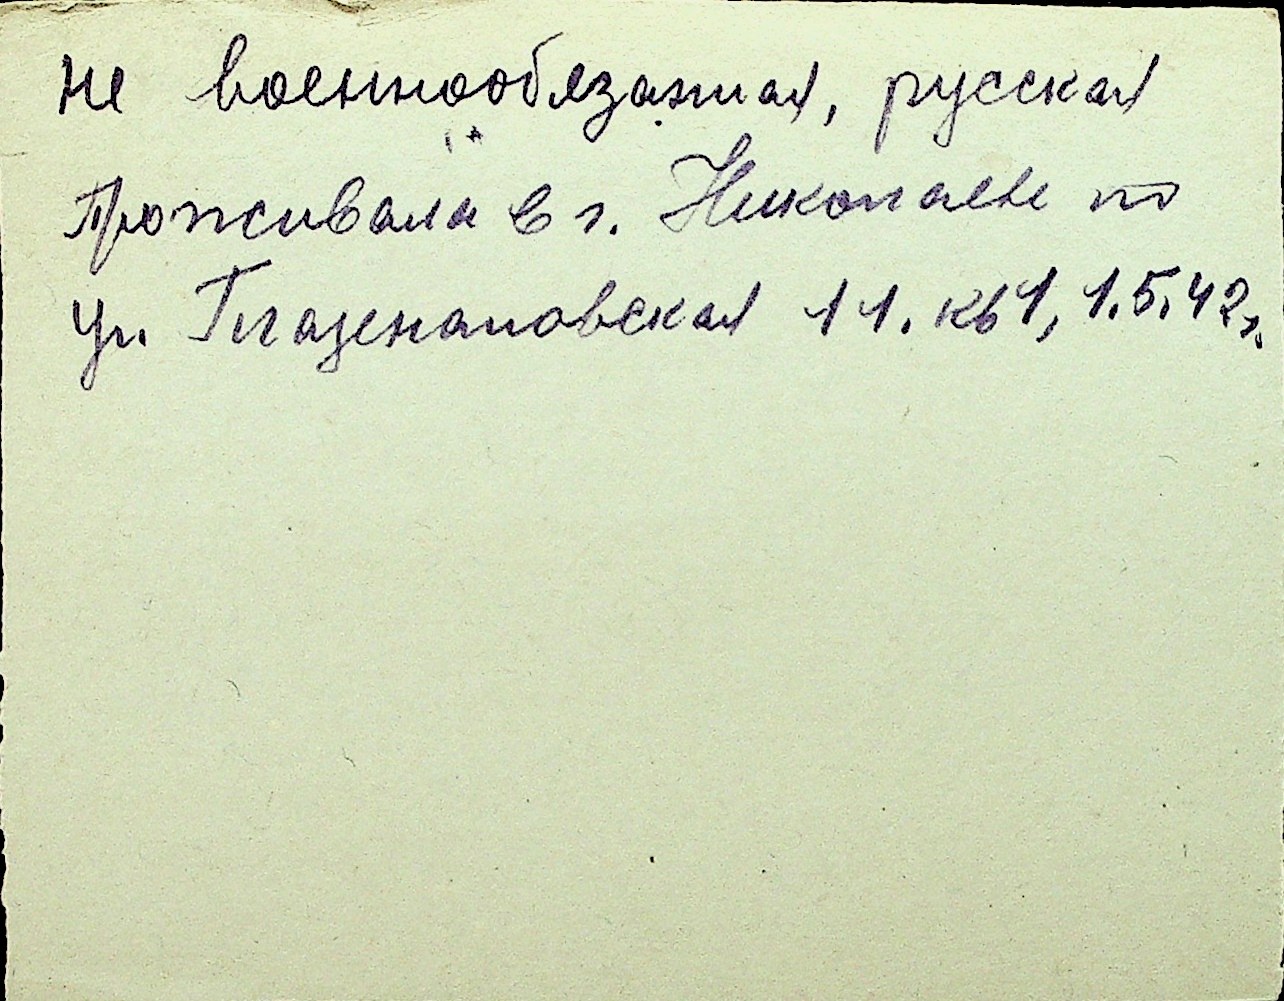 не военнообязаная, русская
Проживала в г. Николаеве по
ул. Глазенаповская 11. кв 1, 1.5.42г.